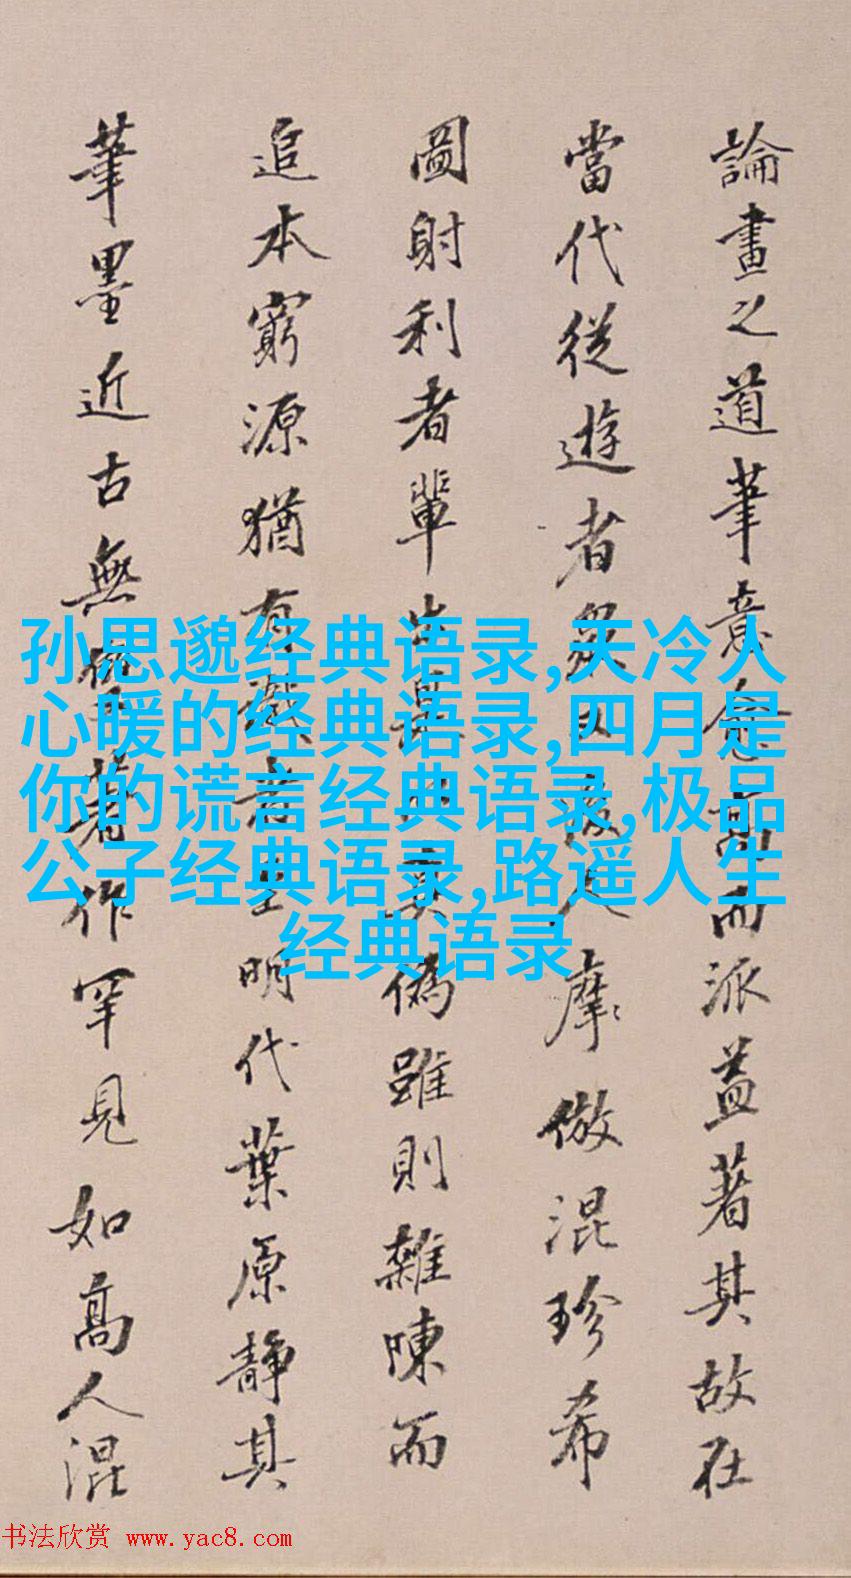 論畫之道筆意愈高而派益著其故在
當代從遊者衆後人摩倣混珍希
圖射利者輩出是真偽雖則雜陳而
追本窮源猶有識者至明代葉原靜其
筆墨近古無奈著作罕見如高人混
孙思邈经典语录,天冷人
心暖的经典语录,四月是
你的谎言经典语录,极品
公子经典语录,路遥人生
经典语录
书法欣赏 www.yac8.com